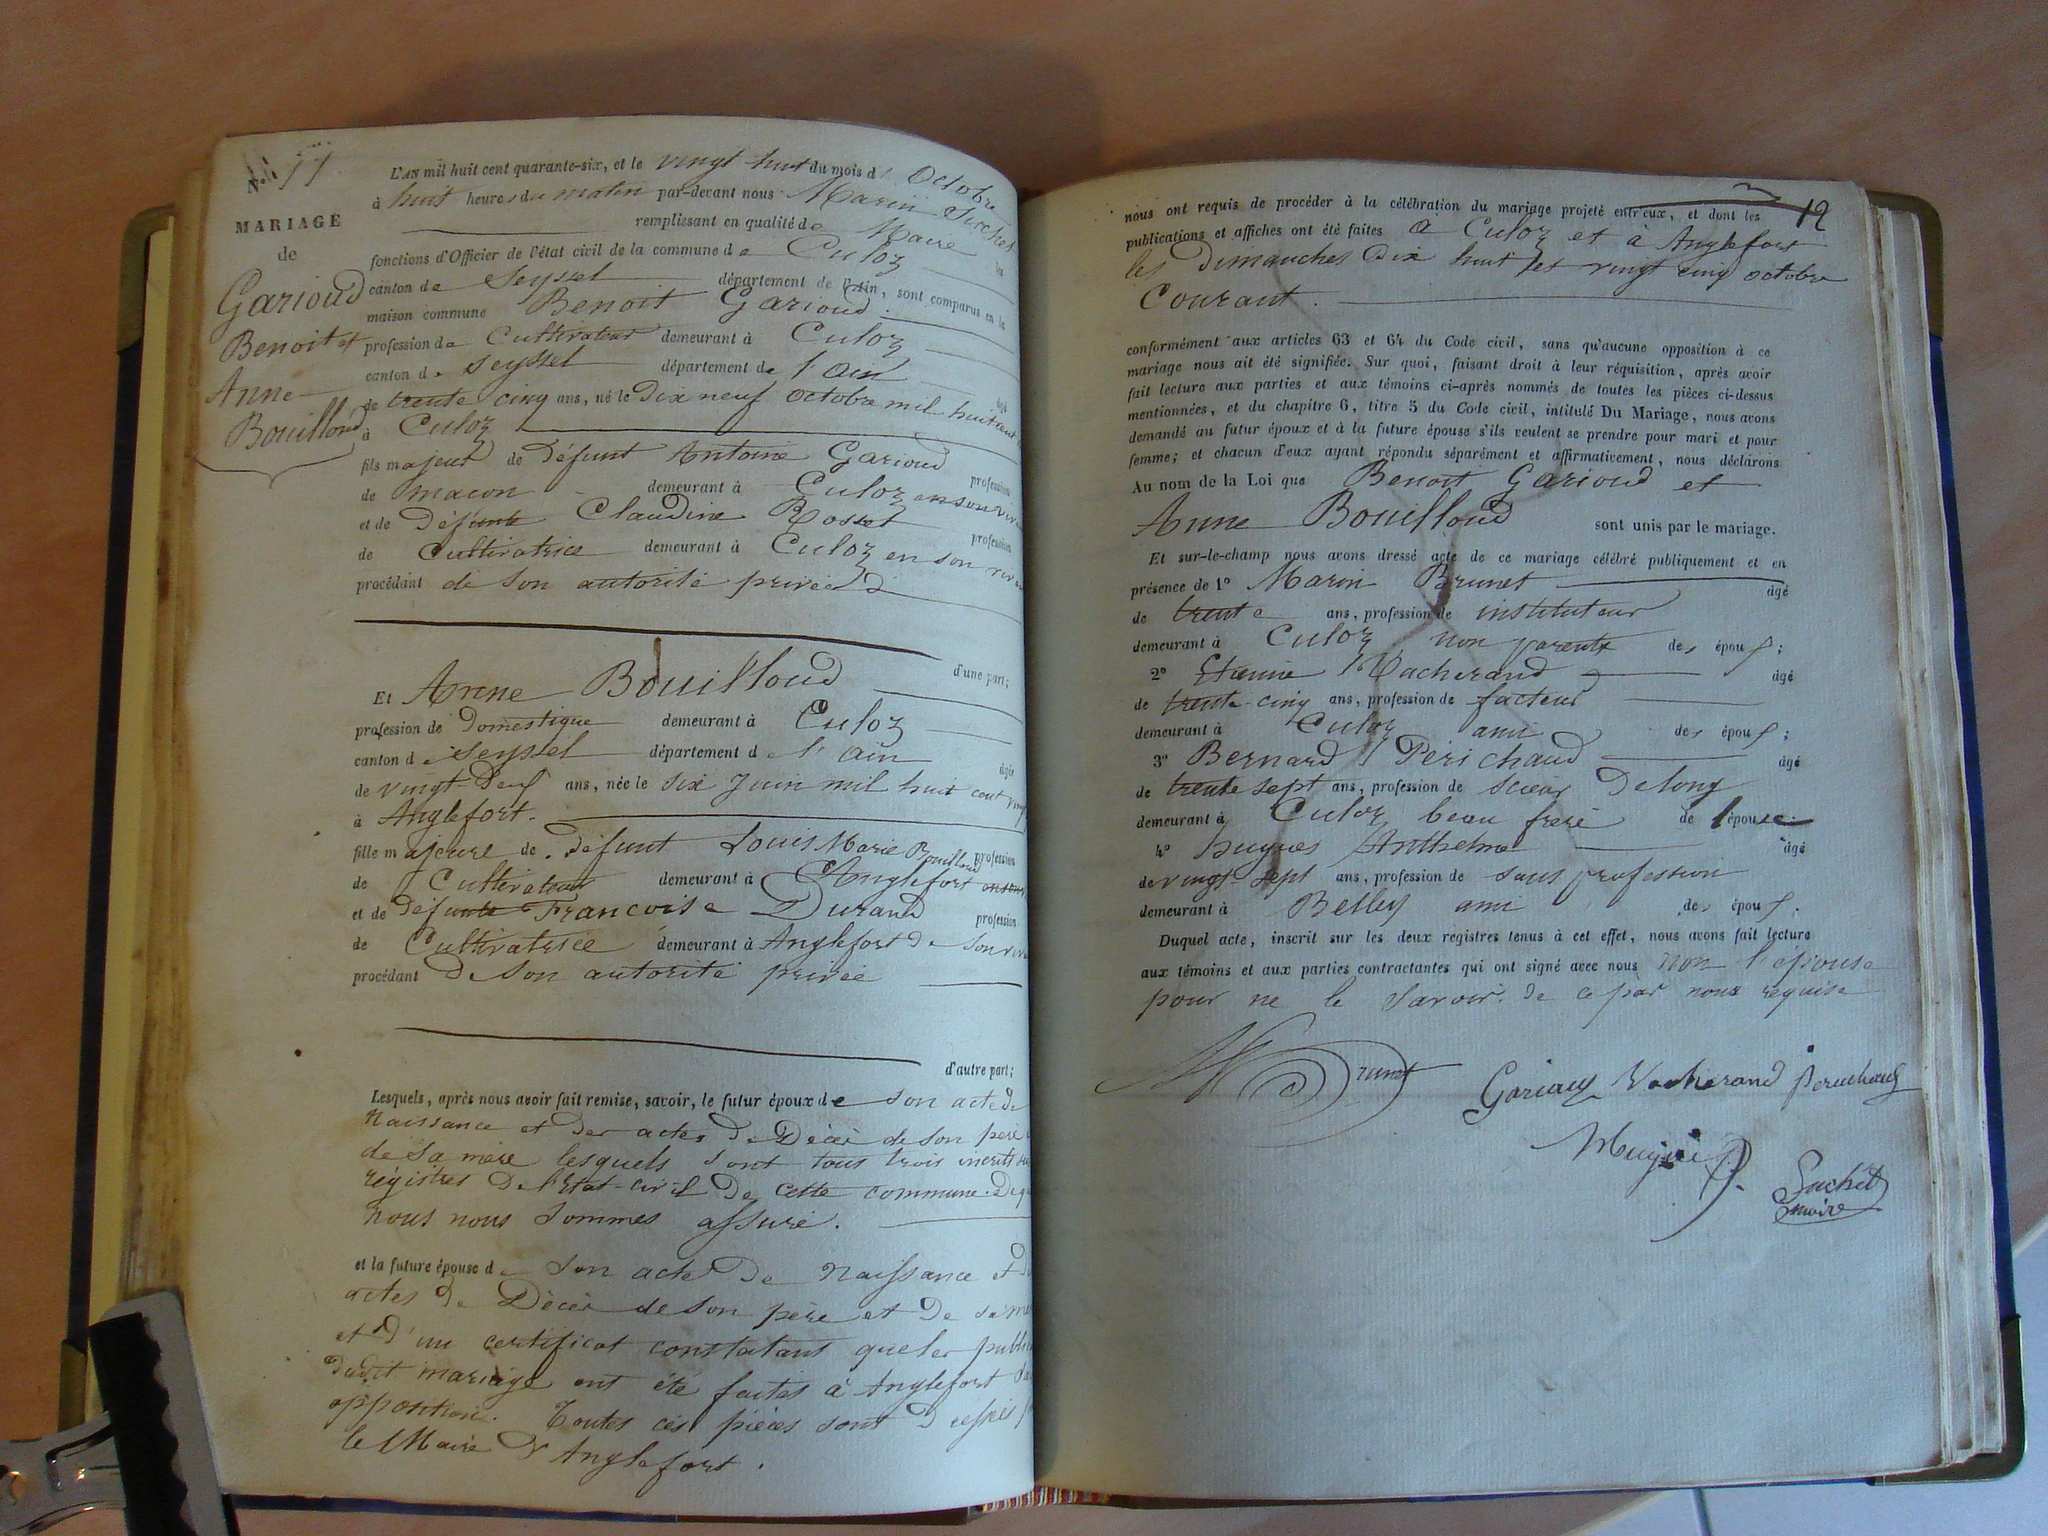 N.º 11
MARIAGE
de
Garioud
Benoit et
Anne
Bouilloud
L'AN mil huit cent quarante-six, et le vingt huit du mois d' Octobre
à huit heures du matin par-devant nous Marin
remplissant en qualité de Maire les
fonctions d'Officier de l'état civil de la commune de Culoz
canton de Seyssel département de l'Ain, sont comparus en la
maison commune Benoit Garioud
profession de Cultivateur demeurant à Culoz
canton de Seyssel département de l'ain âgé
de trente cinq ans, né le Dix neuf octobre mil huit cent
à Culoz
fils majeur de défunt Antoine Garioud profession
de macon demeurant à Culoz en son viva
et de Défunte Claudine Rosset profession
de Cultivatrice demeurant à Culoz en son viva
procédant de son autorité privée
d'une part;
Et Anne Bouilloud
profession de Domestique demeurant à Culoz
canton de Seyssel département de l'ain âgée
de vingt-Deux ans, née le six Juin mil huit cent vingt
à Anglefort.
fille majeure de défunt Louis Marie Bouilloud profession
de Cultivateur demeurant à Anglefort
et de défunte Francoise Durand profession
de Cultivatrice demeurant à Anglefort de son viva
procédant de son autorité privée
d'autre part;
Lesquels, après nous avoir fait remise, savoir, le futur époux de son acte de
Naissance et des actes de Décès de son père
de sa mère lesquels sont tous trois incrits sur
régistres de l'Etat-civil de cette commune. De
nous nous sommes assuré.
et la future épouse de son acte de Naissance et de
actes de Décès de son père et de sa mè
et d'un certificat constatant que les public
dudit mariage ont été faites à Anglefort
opposition. Toutes ces pièces sont
le Maire d'Anglefort.
12
nous ont requis de procéder à la célébration du mariage projeté entr'eux, et dont les
publications et affiches ont été faites à Culoz et à Anglefort
les dimanches Dix huit et vingt cinq octobre
Courant.
conformément aux articles 63 et 64 du Code civil, sans qu'aucune opposition à ce
mariage nous ait été signifiée. Sur quoi, faisant droit à leur réquisition, après avoir
fait lecture aux parties et aux témoins ci-après nommés de toutes les pièces ci-dessus
mentionnées, et du chapitre 6, titre 5 du Code civil, intitulé Du Mariage, nous avons
demandé au futur époux et à la future épouse s'ils veulent se prendre pour mari et pour
femme; et chacun d'eux ayant répondu séparément et affirmativement, nous déclarons
Au nom de la Loi que Benoit Garioud et
Anne Bouilloud sont unis par le mariage.
Et sur-le-champ nous avons dressé acte de ce mariage célébré publiquement et en
présence de 1º Marin Brunet âgé
de trente ans, profession de instituteur
demeurant à Culoz non parents des époux;
2º Etienne Vacherand âgé
de trente-cinq ans, profession de facteur
demeurant à Culoz ami des époux;
3º Bernard Périchaud âgé
de trente sept ans, profession de scieur De long
demeurant à Culoz beau frere de l'épouse
4º hugues Anthelme âgé
de vingt-sept ans, profession de sans profession
demeurant à Belley ami des époux.
Duquel acte, inscrit sur les deux registres tenus à cet effet, nous avons fait lecture
aux témoins et aux parties contractantes qui ont signé avec nous non l'épouse
pour ne le savoir. de ce par nous requise
Brunet
Gariaux Vacherand Perichaud
maire